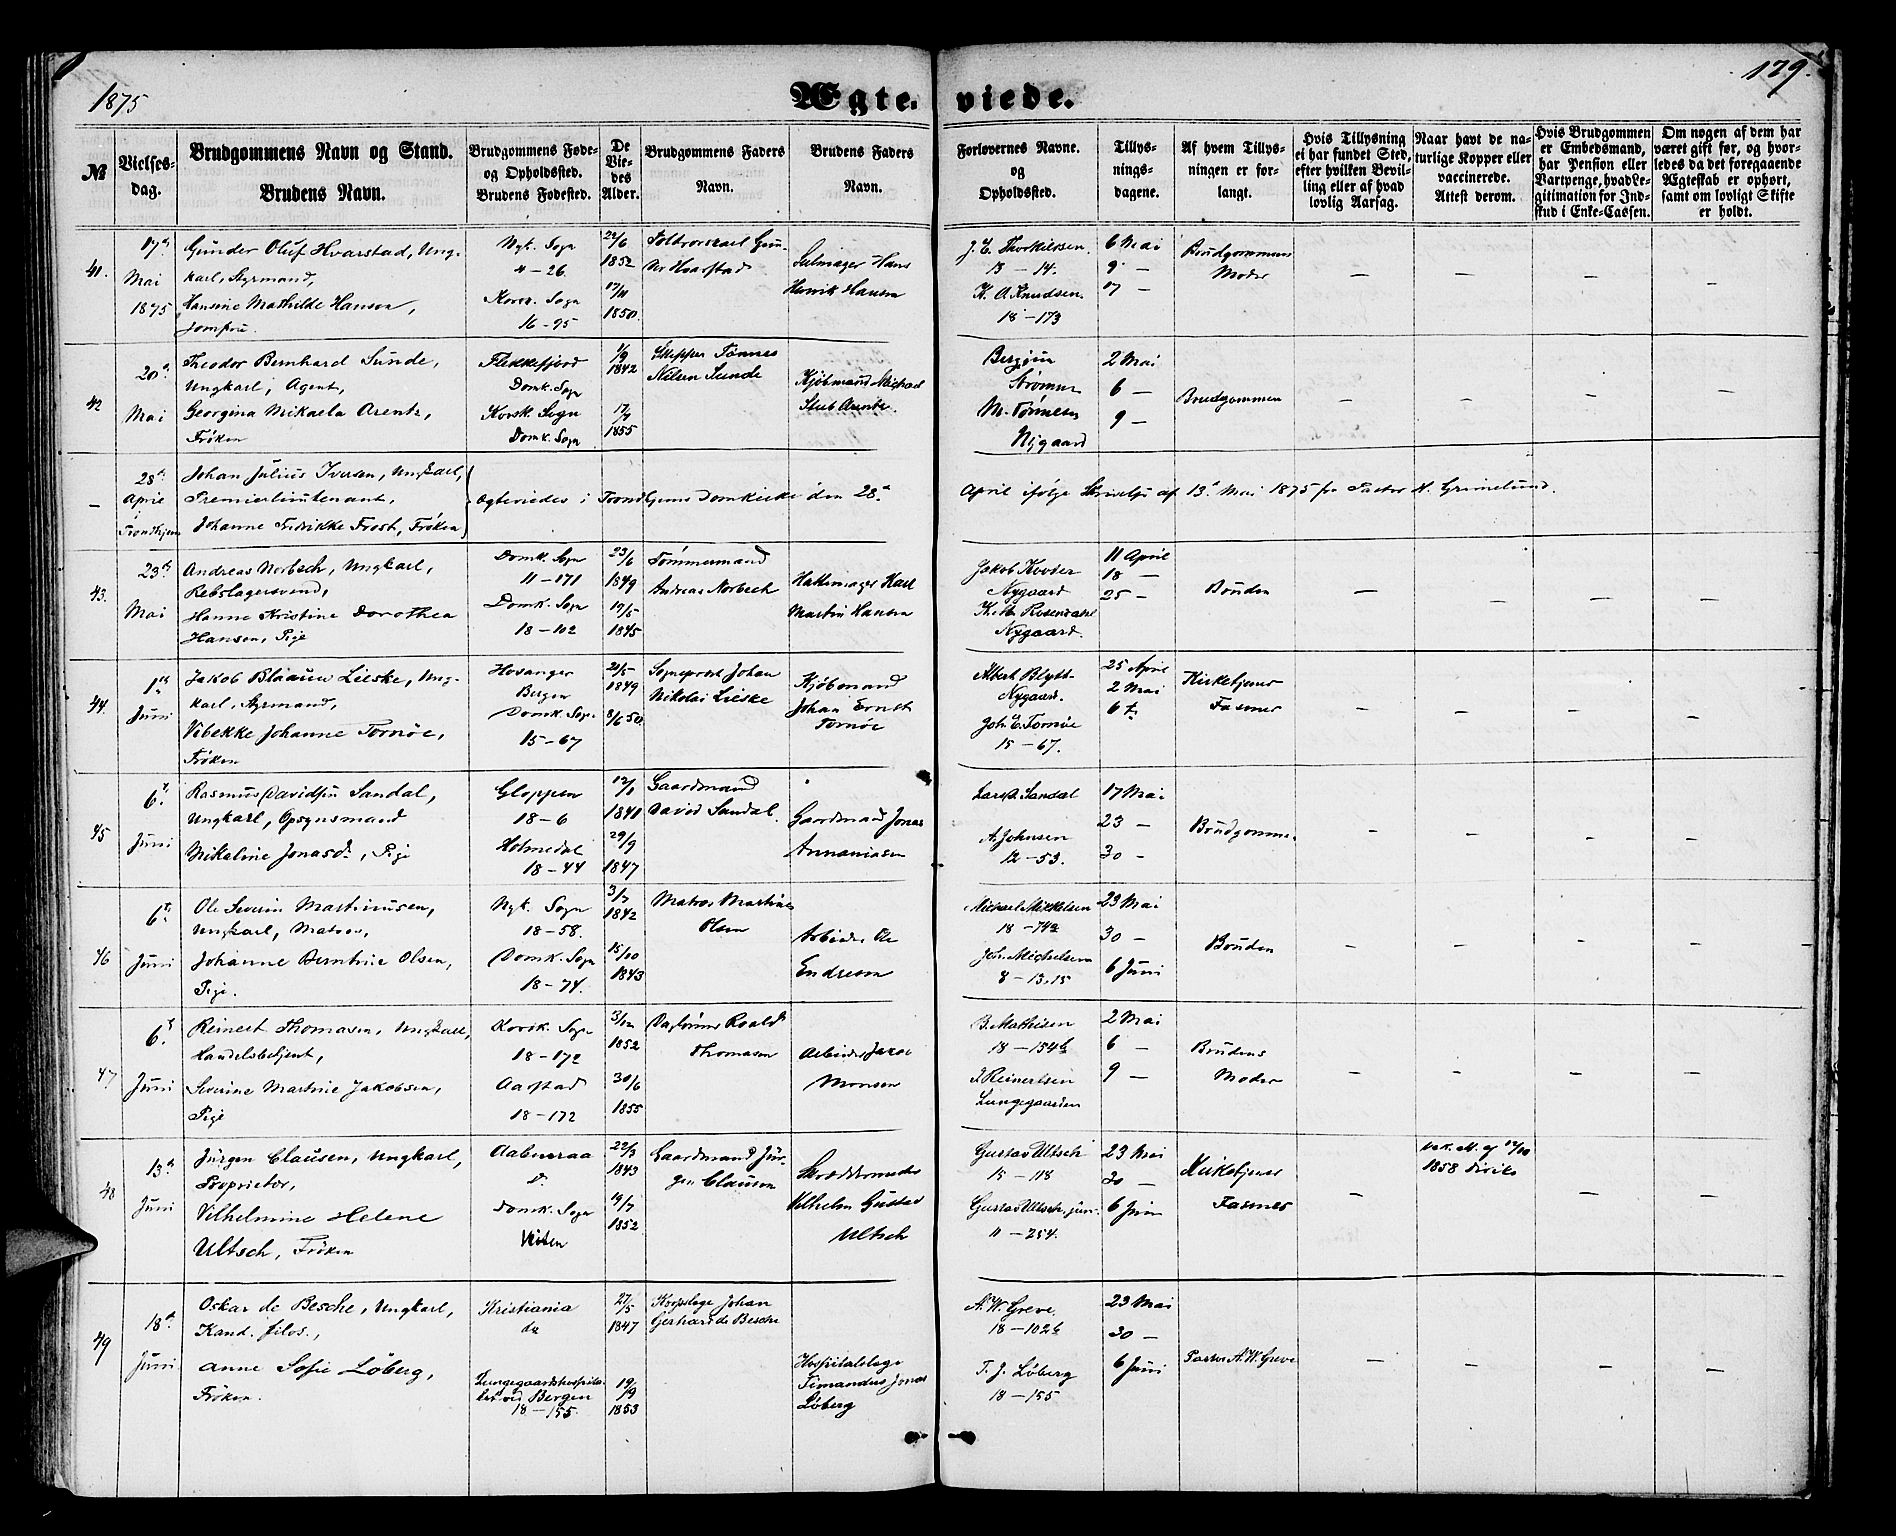 1875
Ægte. viede.
179.
№
Vielses-
dag.
Brudgommens Navn og Stand.
Brudens Navn.
Brudgommens Føde-
og Opholdssted.
Brudens Fødested.
De
Vie-
des
Alder.
Brudgommens Faders
Navn.
Brudens Faders
Navn.
Forlovernes Navne.
og
Opholdssted.
Tillys-
nings-
dagene.
Af hvem Tillys-
ningen er for-
langt.
Hvis Tillysning
ei har fundet Sted,
efter hvilken Bevil-
ling eller af hvad
lovlig Aarsag.
Naar havt de na-
turlige Kopper eller
vaccinerede.
Attest derom.
Hvis Brudgommen
er Embedsmand,
har Pension eller
Vartpenge, hvad Le-
gitimation for Ind-
skud i Enke-Cassen.
Om nogen af dem har
været gift før, og hvor-
ledes da det foregaaende
Ægteskab er ophørt,
samt om lovligt Skifte
er holdt.
41.
17de
Mai
1875
Gunder Oluf Hvarstad, Ung-
karl, Styrmand,
Hansine Mathilde Hanson,
Jomfru.
Nyk. Sogn
4-26
Korsk. Sogn
16-95
1852
17/11
1850.
Hans
Henrik Hansen
J. E. Thorkildsen.
13-14.
K. A. Knudsen.
18-173
6 Mai
9 —
17 —
Brudgommens
Moder
42
20de
Mai
Theodor Bernhard Sunde,
Ungkarl, Agent,
Georgina Mikaela Arentz,
Frøken
Flekkefjord
Domk. Sogn
Korsk. Sogn
Domk. Sogn
1/9
1842
1855
Skipper Tønnes
Nilsen Sunde
Kjøbmand Michael
Stub Arentz.
Strømm
Nygaard
2 Mai
6 —
9 —
Brudgommen
—
28de
April
i
Trondhjem
Johan Julius Iversen, Ungkarl,
Premierlieutenant,
Johanne Fredrikke Frost, Frøken
Ægteviedes i Trondhjems Domkirke den 28de
April ifølge Skrivelse af 13de Mai 1875 fra Pastor N. Grimelund.
43.
23de
Mai
Andreas Norbech, Ungkarl,
Rebslagersvend,
Hanne Kristine Dorothea
Hansen, Pige
Domk. Sogn
11-171
Domk. Sogn
18-102
23/6
1849
19/5
1845
Tømmermand
Andreas Norbech
Hattemager Karl
Martin Hansen
Nygaard
Nygaard.
11 April
18 —
25 —
Bruden
44.
1ste
Juni
Jakob Blaauw Lieske, Ung-
karl, Styrmand,
Vibekke Johanne Tornøe,
Frøken
Hosanger
Bergen
Domk. Sogn.
15-67
1849
8/6 50.
Sogneprest Johan
Nikolai Lieske
Kjøbmand
Johan Ernst
Tornøe
Albert Blytt.
Nygaard.
Joh. E. Tornøe
15-67.
25 April
2 Mai
6 t.
Kirketjener
Fasmer
45
6te
Juni
Rasmus Davidsen Sandal,
Ungkarl, Opsynsmand
Nikaline Jonasdr, Pige
Gloppen
18-6
Holmedal
18-44
12/1
1840
29/9
1847
Gaardmand
David Sandal.
Gaardmand Jonas
Annaniasen
Lars Sandal
A. Johnsen
12-53.
17 Mai
23 —
30 —
Brudgommen
46
6te
Juni
Ole Severin Martinusen,
Ungkarl, Matros,
Johanne Berntine Olsen,
Pige.
Nyk. Sogn
18-58.
Domk. Sogn
18-74.
3/7
1842
15/10
1843
Matros Martinus
Olsen
Arbeider Ole
Endresen
Michael Mikkelsen
18-74a
Joh. Michelsen
8-13.15
23 Mai
30 —
6 Juni
Bruden
47
6te
Juni
Reinert Thomasen, Ungkarl,
Handelsbetjent,
Severine Martine Jakobsen,
Pige
Korsk. Sogn
18-172
Aarstad
18-172
3/12
1852
30/6
1855
Roald
Thomasen
Arbeider Jakob
Monsen
B. Mathisen
18-154b
J. Reinertsen
Lungegaarden
2 Mai
6 —
9 —
Brudens
Moder
48
13de
Juni
Jürgen Clausen, Ungkarl,
Proprietær,
Vilhelmine Helene
Ultsch, Frøken
Aabenraa
D.
Domk. Sogn
Veiten
22/3
1843
19/7
1852
Gaardmand Jür-
gen Clausen
Skræddermester
Vilhelm Gustav
Ultsch
Gustav Ultsch
15-118
Gustav Ultsch, jun.
11-254.
23 Mai
30 —
6 Juni
Kirketjener
Fasmer
Vak. A. af 12/10
1858
49
18de
Juni
Oskar de Besche, Ungkarl,
Kand. filos.,
Anne Sofie Løberg,
Frøken.
Kristiania
do
Lungegaardshospita-
let ved Bergen
18-155
27/5
1847
19/9
1853
Korpslæge Johan
Gerhard de Besche
Hospitalslæge
Timandus Jonas
Løberg
A. W. Greve.
18-102b
T. J. Løberg
18-155
23 Mai
30 —
6 Juni
Pastor A. W. Greve